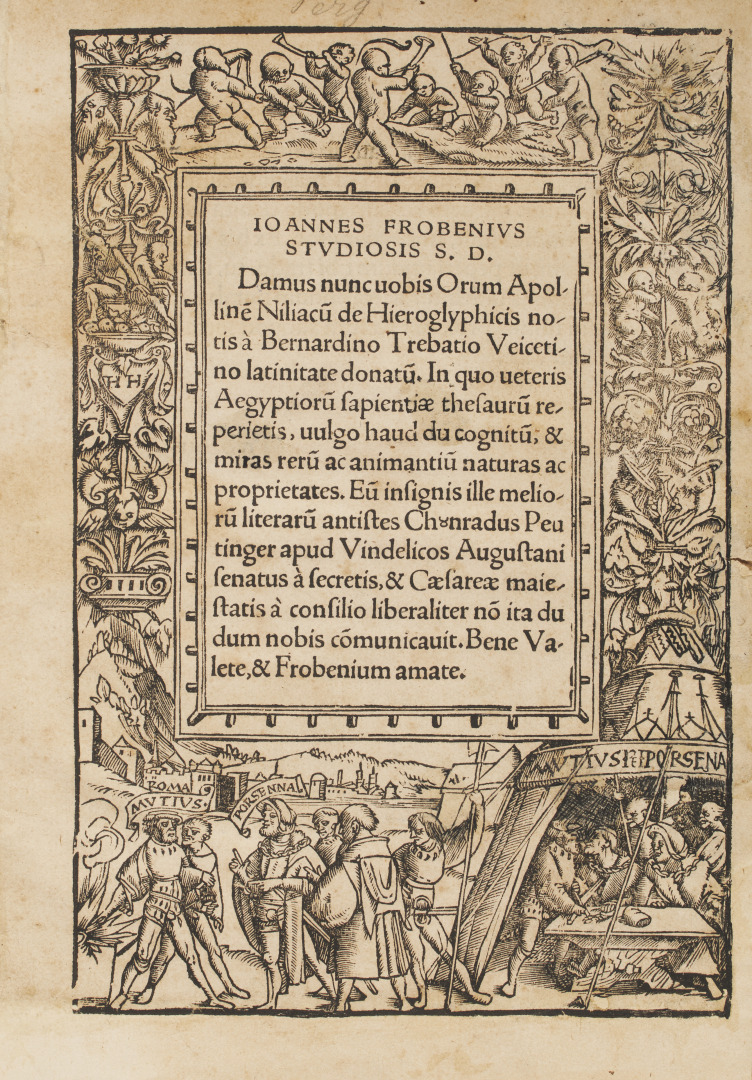 Perg
IOANNES FROBENIVS
STVDIOSIS S. D.
Damus nunc uobis Orum Apol-
linē Niliacū de Hieroglyphicis no-
tis à Bernardino Trebatio Veiceti-
no latinitate donatū. In quo ueteris
Aegyptiorū sapientiæ thesaurū re-
perietis, uulgo haud du cognitū, &
miras rerū ac animantiū naturas ac
proprietates. Eū insignis ille melio-
rū literarū antistes Chȣnradus Peu
tinger apud Vindelicos Augustani
senatus à secretis, & Cæsareæ maie-
statis à consilio liberaliter nō ita du
dum nobis cōmunicauit. Bene Va-
lete, & Frobenium amate.
HH
ROMA
MVTIVS.
PORSENNA
MVTIVS PORSENA